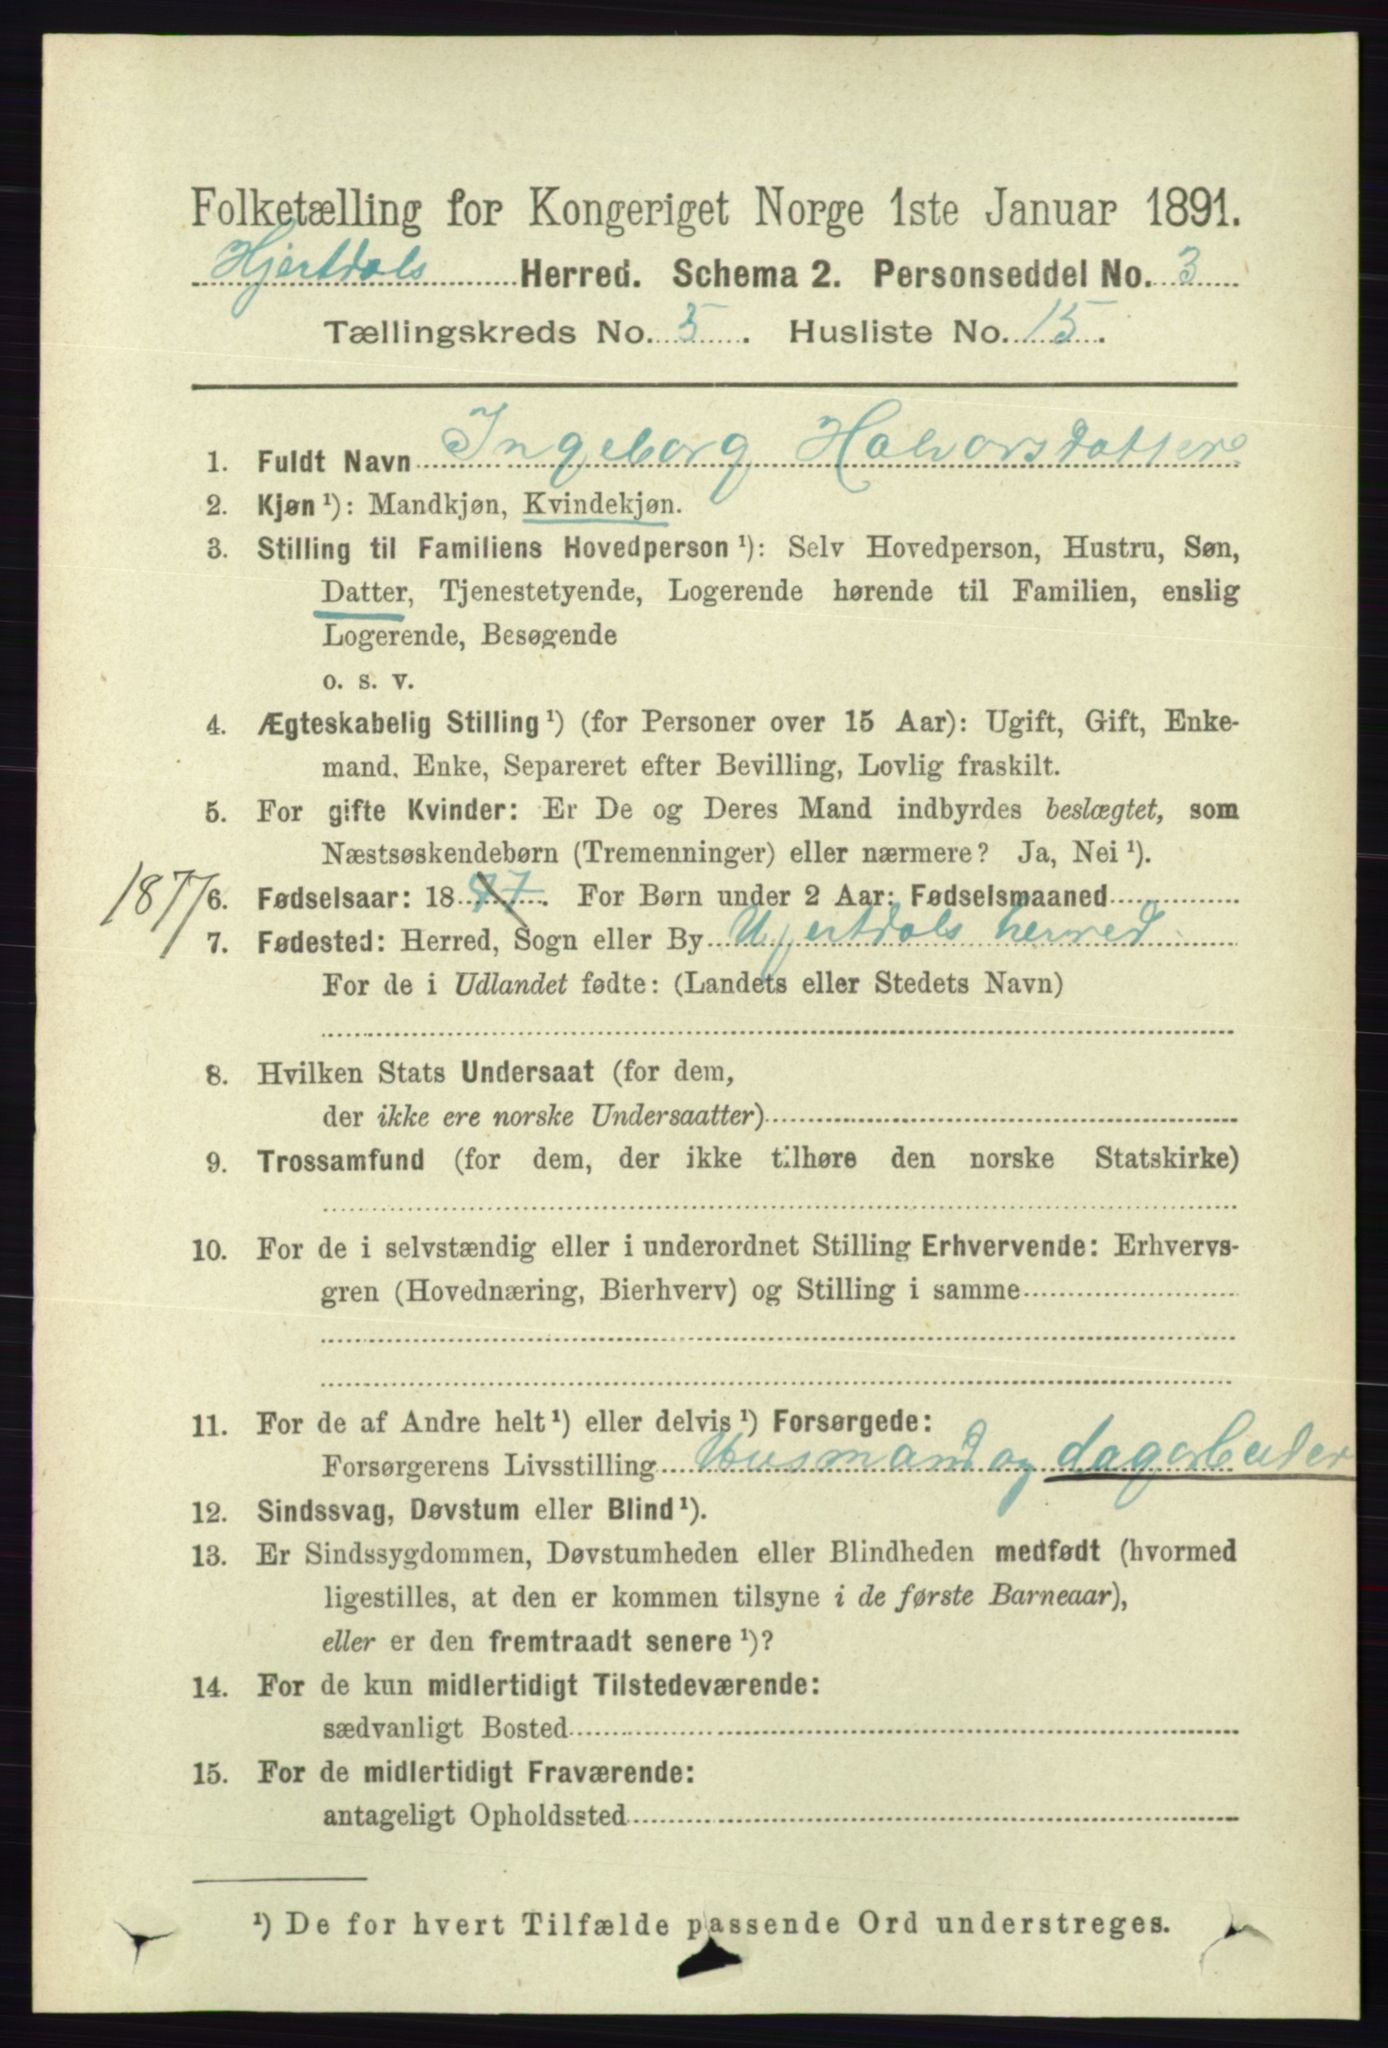 Folketælling for Kongeriget Norge 1ste Januar 1891.
Hjertdals Herred. Schema 2. Personseddel No. 3
Tællingskreds No. 5. Husliste No. 15.
1. Fuldt Navn Ingeborg Halvorsdatter
2. Kjøn ¹): Mandkjøn, Kvindekjøn.
3. Stilling til Familiens Hovedperson ¹): Selv Hovedperson, Hustru, Søn,
Datter, Tjenestetyende, Logerende hørende til Familien, enslig
Logerende, Besøgende
o. s. v.
4. Ægteskabelig Stilling ¹) (for Personer over 15 Aar): Ugift, Gift, Enke-
mand, Enke, Separeret efter Bevilling, Lovlig fraskilt.
5. For gifte Kvinder: Er De og Deres Mand indbyrdes beslægtet, som
Næstsøskendebørn (Tremenninger) eller nærmere? Ja, Nei ¹).
1877/ 6. Fødselsaar: 18 77. For Børn under 2 Aar: Fødselsmaaned
7. Fødested: Herred, Sogn eller By Hjertdals herred
For de i Udlandet fødte: (Landets eller Stedets Navn)
8. Hvilken Stats Undersaat (for dem,
der ikke ere norske Undersaatter)
9. Trossamfund (for dem, der ikke tilhøre den norske Statskirke)
10. For de i selvstændig eller i underordnet Stilling Erhvervende: Erhvervs-
gren (Hovednæring, Bierhverv) og Stilling i samme
11. For de af Andre helt ¹) eller delvis ¹) Forsørgede:
Forsørgerens Livsstilling Husmand og dagarbeider
12. Sindssvag, Døvstum eller Blind ¹).
13. Er Sindssygdommen, Døvstumheden eller Blindheden medfødt (hvormed
ligestilles, at den er kommen tilsyne i de første Barneaar),
eller er den fremtraadt senere ¹)?
14. For de kun midlertidigt Tilstedeværende:
sædvanligt Bosted
15. For de midlertidigt Fraværende:
antageligt Opholdssted
¹) De for hvert Tilfælde passende Ord understreges.